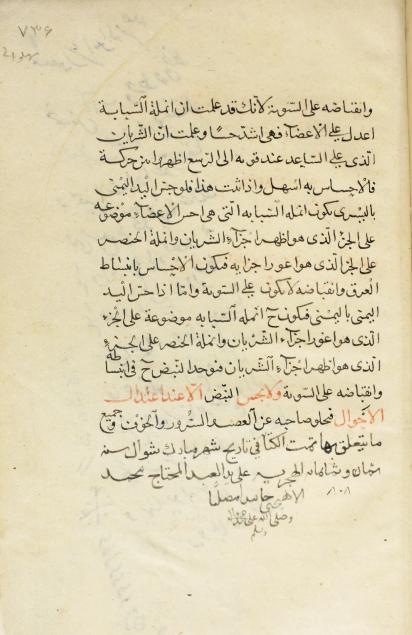 وانقباضه على السوية لانك قد علمت ان انملة السبابة
اعدل على الاعضاء فهى اشد حسّا وعلمت ان الشريان
الذى على الساعد عند قربه الى الرسغ اظهر ابين حركة
فالاحساس به اسهل واذا ثبت هذا فلو جس اليد اليمنى
باليسرى يكون انملة السبابة التى هى احس الاعضاء موضوعه
على الجزء الذى هو اظهر اجزاء الشريان وانملة الخنصر
على الجزء الذى هو اغور اجزايه فيكون الاحساس بانبساط
العرق وانقباضه لا يكون على السوية واما اذا جس اليد
اليمنى باليمنى فيكون ح انملة السبابة موضوعة على الجزء
الذى هو اغور اجزاء الشريان وانملة الخنصر على الجزء
الذى هو اظهر اجزاء الشريان فنوجد النبض ح فى انبساطه
وانقباضه على السوية ولا يجس النبض الا عند اعتدال
الاحوال فخلو صاحبه عن الغضب والسرور والحزن وجميع
ما يتعلق بها تمت الكتاب فى تاريخ شهر مبارك شوال سنه
ثمان و ثمانمائه الهجريه على يد العبد المحتاج محمد
٨٠٨
حامدا مصليا
وصلى الله على محمد واله
وسلم
٧٣۶